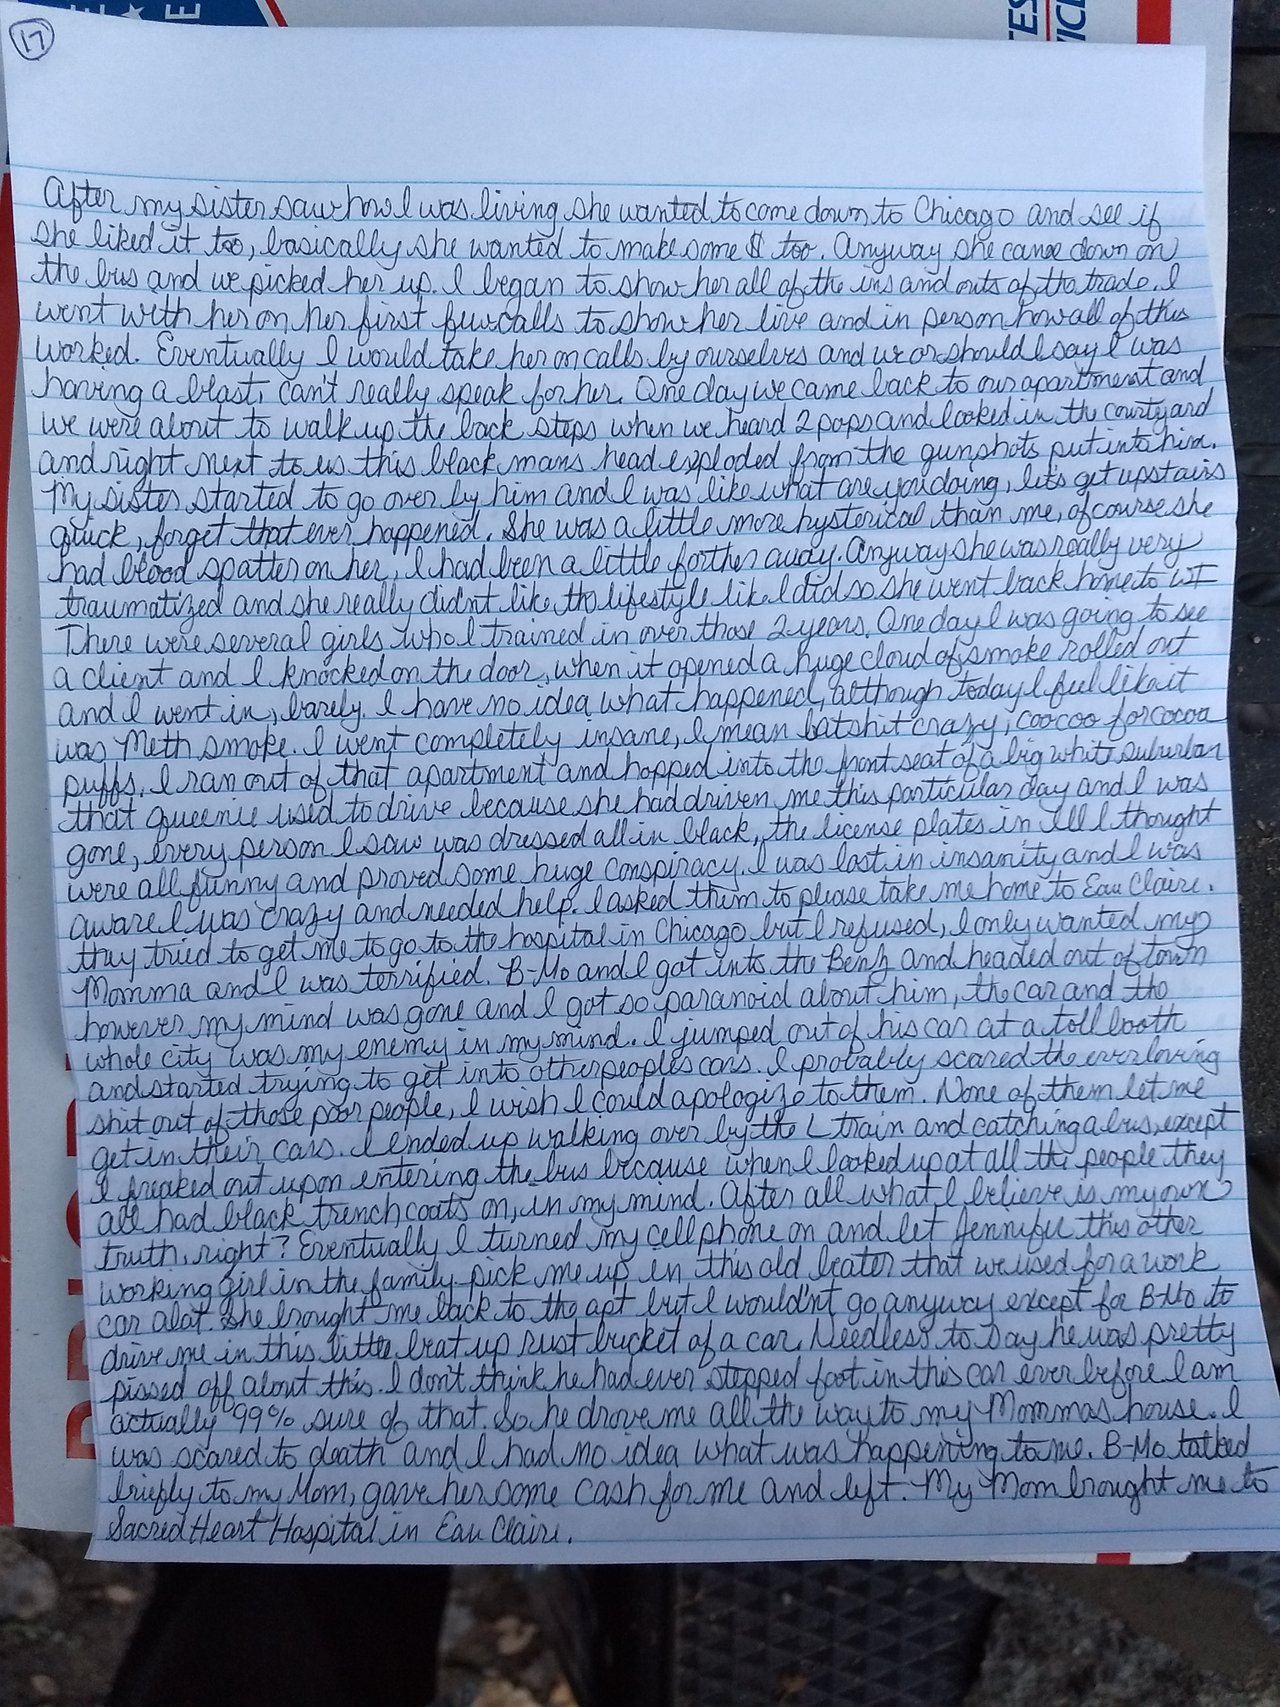 17
After my sister saw how I was living she wanted to come down to Chicago and see if
she liked it too, basically she wanted to make some $ too. Anyway she came down on
the bus and we picked her up. I began to show her all of the ins and outs of the trade. I
went with her on her first few calls to show her live and in person how all of this
worked. Eventually I would take her on calls by ourselves and we or should I say I was
having a blast, can't really speak for her. One day we came back to our apartment and
we were about to walk up the back steps when we heard 2 pops and looked in the courtyard
and right next to us this black mans head exploded from the gunshots put into him.
My sister started to go over by him and I was like what are you doing, let's get upstairs
quick, forget that ever happened. She was a little more hysterical than me, of course she
had blood spatter on her, I had been a little farther away. Anyway she was really very
traumatized and she really didn't like the lifestyle like I did so she went back home to WI
There were several girls who I trained in over those 2 years. One day I was going to see
a client and I knocked on the door, when it opened a huge cloud of smoke rolled out
and I went in, barely. I have no idea what happened, although today I feel like it
was Meth smoke. I went completely insane, I mean batshit crazy, coocoo for cocoa
puffs. I ran out of that apartment and hopped into the front seat of a big white suburban
that Queenie used to drive because she had driven me this particular day and I was
gone, every person I saw was dressed all in black, the license plates in Ill I thought
were all funny and proved some huge conspiracy. I was lost in insanity and I was
aware I was crazy and needed help. I asked them to please take me home to Eau Claire.
they tried to get me to go to the hospital in Chicago but I refused, I only wanted my
Momma and I was terrified. B-Mo and I got into the Benz and headed out of town
however my mind was gone and I got so paranoid about him, the car and the
whole city was my enemy in my mind. I jumped out of his car at a toll booth
and started trying to get into other peoples cars. I probably scared the everloving
shit out of those poor people, I wish I could apologize to them. None of them let me
get in their cars. I ended up walking over by the L train and catching a bus, except
I freaked out upon entering the bus because when I looked up at all the people they
all had black trench coats on, in my mind. After all what I believe is my own
truth, right? Eventually I turned my cell phone on and let Jennifer this other
working girl in the family pick me up in this old beater that we used for a work
car alot. She brought me back to the apt but I wouldn't go anyway except for B-Mo to
drive me in this little beat up rust bucket of a car. Needless to say he was pretty
pissed off about this. I don't think he had ever stepped foot in this car ever before I am
actually 99% sure of that. So he drove me all the way to my Mommas house. I
was scared to death and I had no idea what was happening to me. B-Mo talked
briefly to my Mom, gave her some cash for me and left. My Mom brought me to
Sacred Heart Hospital in Eau Claire.